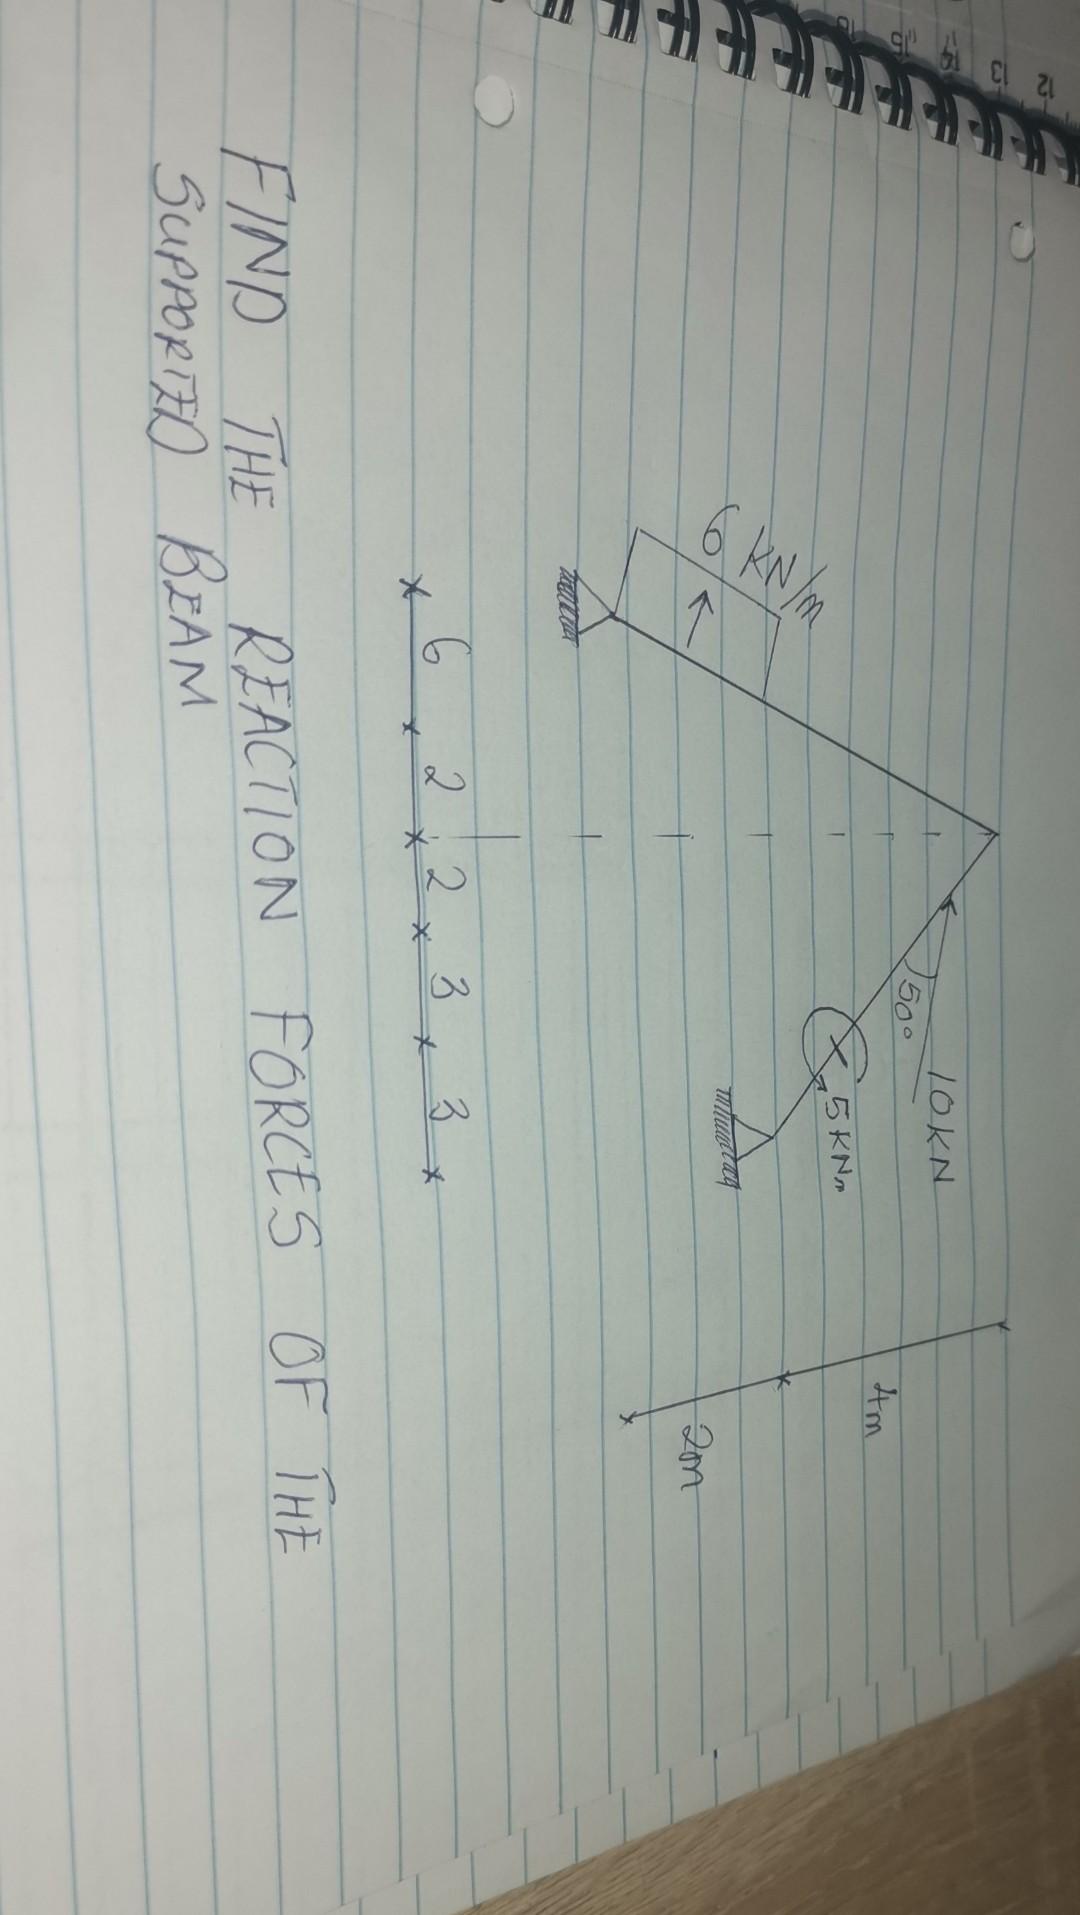 12 13 14 15 16
10KN
50°
5KNm
6 KN/m
4m
2m
6 2 2 3 3
FIND THE REACTION FORCES OF THE
SUPPORTED BEAM